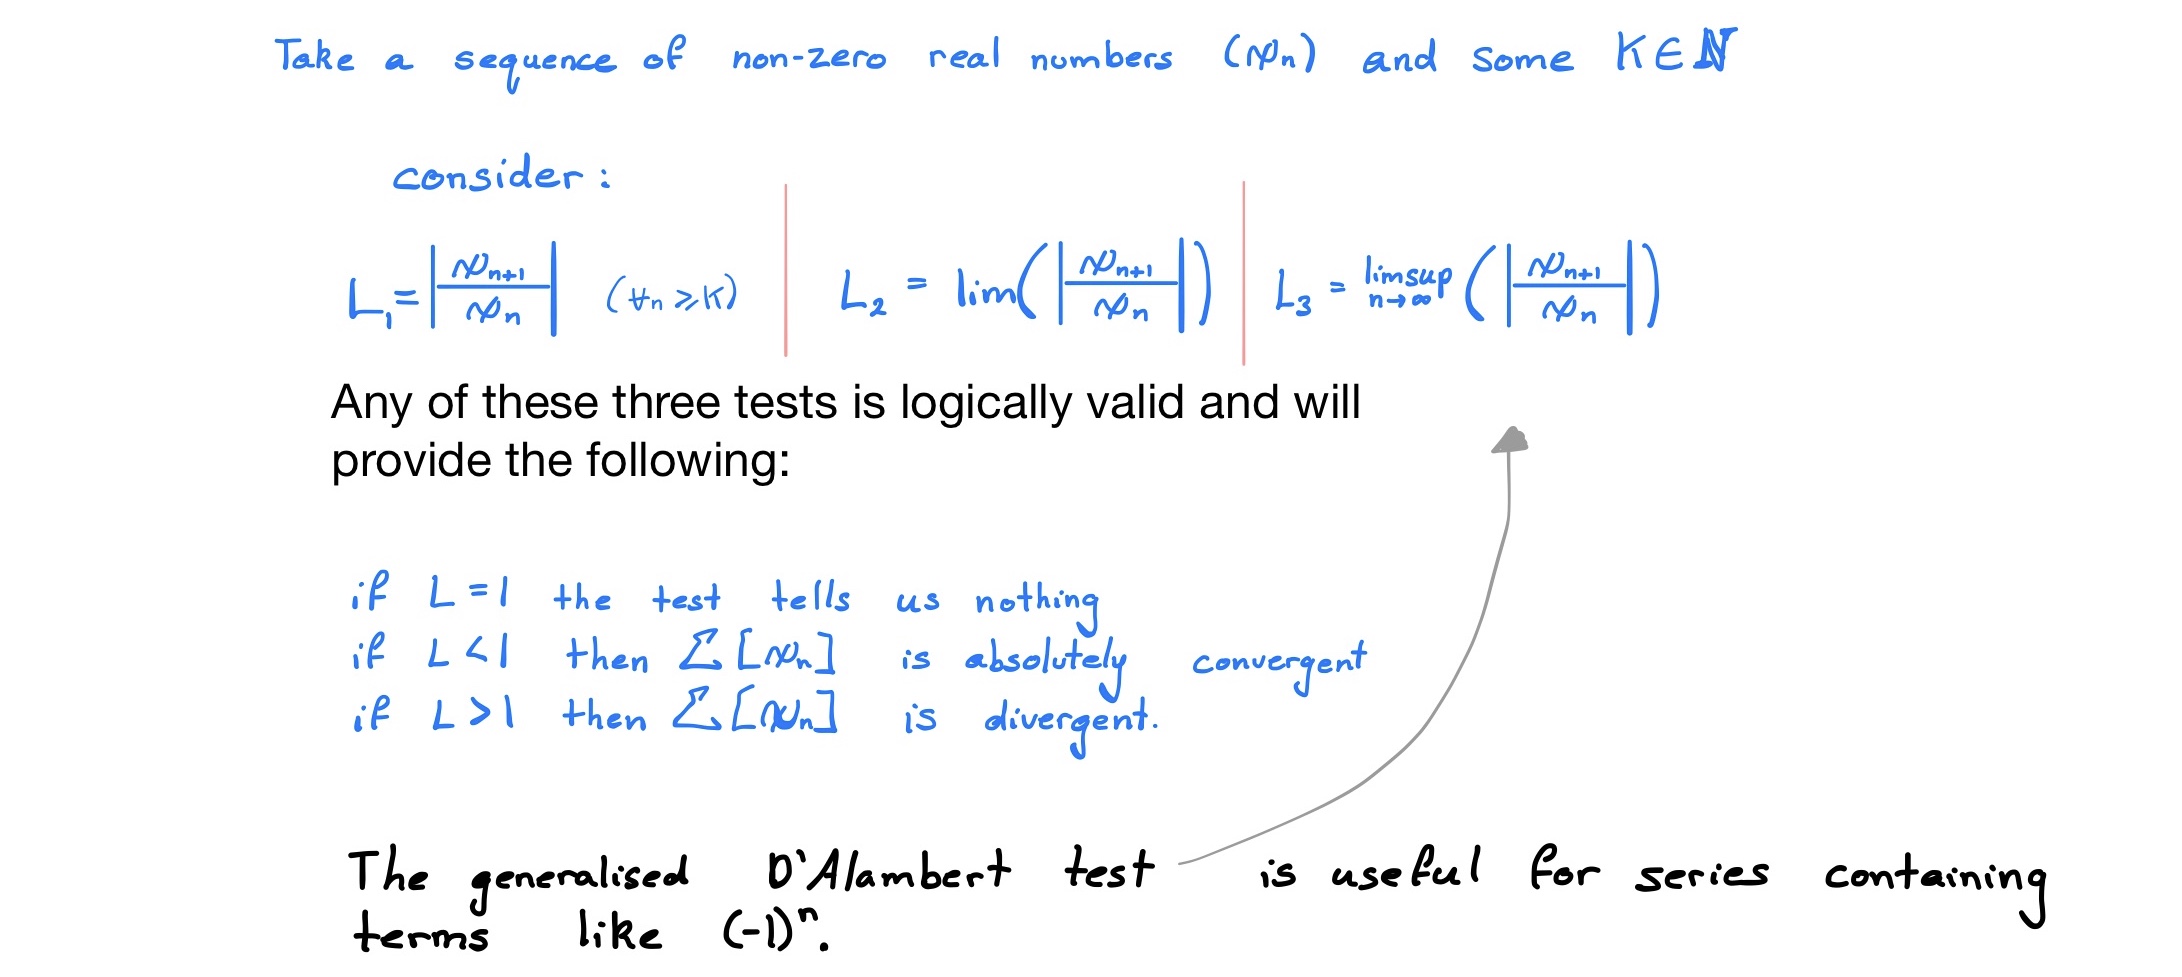 Take a sequence of non-zero real numbers (xₙ) and some K∈ℕ
consider:
L₁ = |xₙ₊₁ / xₙ| (∀n ⩾ K) L₂ = lim(|xₙ₊₁ / xₙ|) L₃ = limsup n→∞ (|xₙ₊₁ / xₙ|)
Any of these three tests is logically valid and will
provide the following:
if L = 1 the test tells us nothing
if L < 1 then Σ[xₙ] is absolutely convergent
if L > 1 then Σ[xₙ] is divergent.
The generalised D'Alambert test is useful for series containing
terms like (-1)ⁿ.